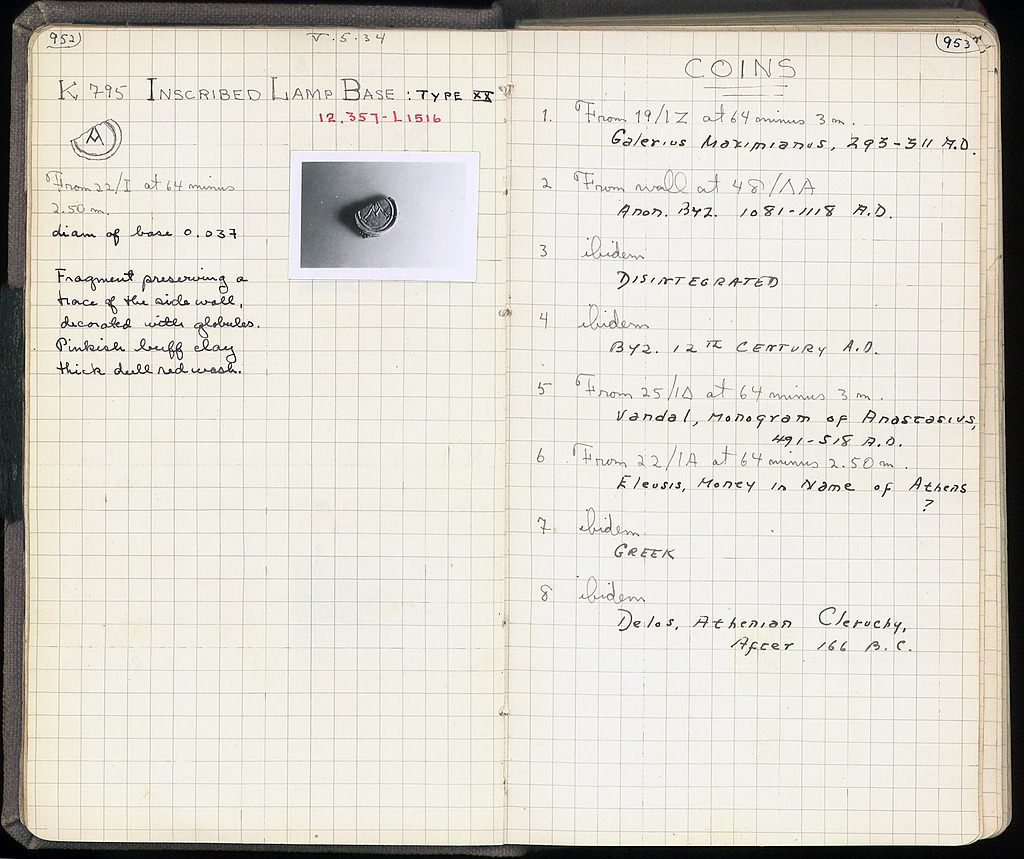 952
V.5.34
K 795 INSCRIBED LAMP BASE : TYPE XX
12,357-L1516
From 22/I at 64 minus
2.50 m.
diam of base 0.037
Fragment preserving a
trace of the side wall,
decorated with globules.
Pinkish buff clay
thick dull red wash.
953
COINS
1. From 19/IZ at 64 minus 3 m.
Galerius Maximianus, 293-311 A.D.
2 From wall at 48/ΛA
Anon. Byz. 1081-1118 A.D.
3 ibidem
DISINTEGRATED
4 ibidem
BYZ. 12TH CENTURY A.D.
5 From 25/IΔ at 64 minus 3 m.
Vandal, Monogram of Anastasius,
491-518 A.D.
6 From 22/IA at 64 minus 2.50 m.
Eleusis, Money in Name of Athens
?
7 ibidem
GREEK
8 ibidem
Delos, Athenian Cleruchy,
After 166 B.C.